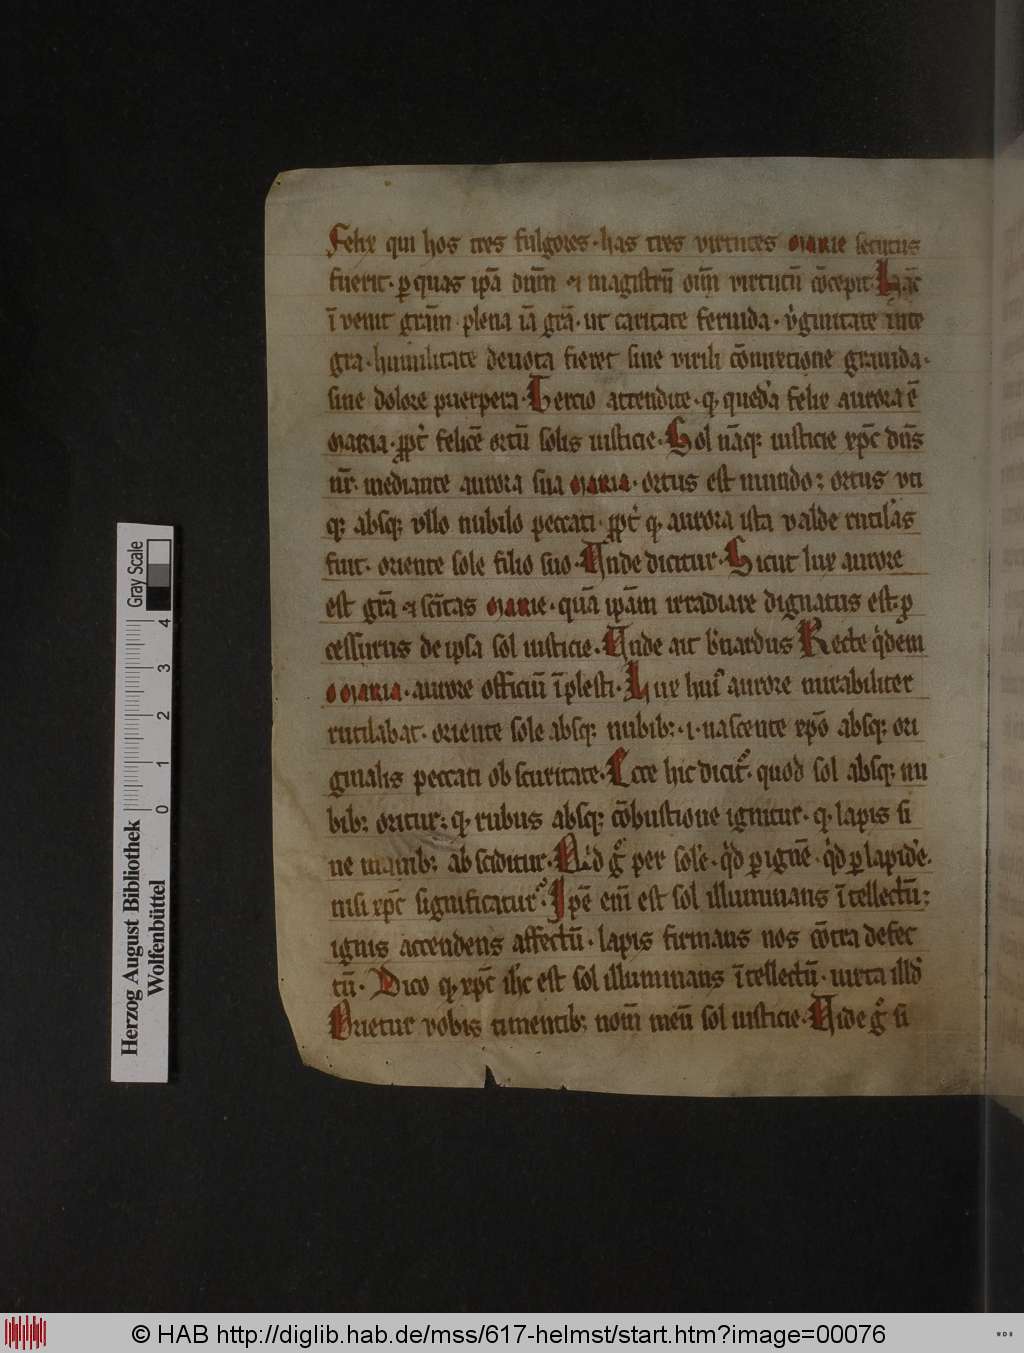 Felix qui hos tres fulgores · has tres virtutes MARIE secutus
fuerit · ꝑ quas ip̄a dn̄m ⁊ magistrū oīm virtutū cōcepit · Hāc
ī venit grām · plena iā grā · ut caritate feruida · v̓ginitate inte
gra · humilitate deuota fieret sine virili cōmixtione grauida ·
sine dolore puerpera · Tercio attendite · ꝙ quedā felix aurora ē
MARIA · ꝓpt̓ felicē ortū solis iusticie · Sol nāqꝫ iusticie xp̄c dn̄s
nr̄ · mediante aurora sua MARIA · ortus est mundo ; ortus vti
qꝫ absqꝫ vllo nubilo peccati · ꝓpt̓ ꝙ aurora ista valde rutilās
fuit · oriente sole filio suo · Vnde dicitur · Sicut lux aurore
est grā ⁊ sc̄itas MARIE · quā ip̄am irradiare dignatus est · ꝓ
cessurus de ipsa sol iusticie · Vnde ait b̓nardus Recte q̓dem
O MARIA · aurore officiū īplesti · Lux huiꝰ aurore mirabiliter
rutilabat · oriente sole absqꝫ nubibꝫ · i · nascente xp̄o absqꝫ ori
ginalis peccati obscuritate · Ecce hic dicit᷑ · quod sol absqꝫ nu
bibꝫ oritur ; ꝙ rubus absqꝫ cōbustione ignitur · ꝙ lapis si
ne manibꝫ absciditur · Qd̓ gͦ per solē · q̓d ꝑ ignē · q̓d ꝑ lapidē ·
nisi xp̄c significatur · Ipē eni est sol illuminans ītellectū ;
ignis accendens affectū · lapis firmans nos cōtra defec
tū · Dico ꝙ xp̄c ih̄c est sol illuminans ītellectū · iuxta illd̓
Orietur vobis timentibꝫ nom̄ meū sol iusticie · Vide gͦ si
Gray Scale
4
3
2
1
0
Herzog August Bibliothek
Wolfenbüttel
© HAB http://diglib.hab.de/mss/617-helmst/start.htm?image=00076